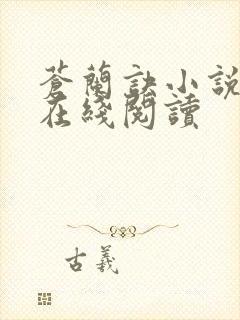 蒼蘭訣小說
在綫閱讀
古義